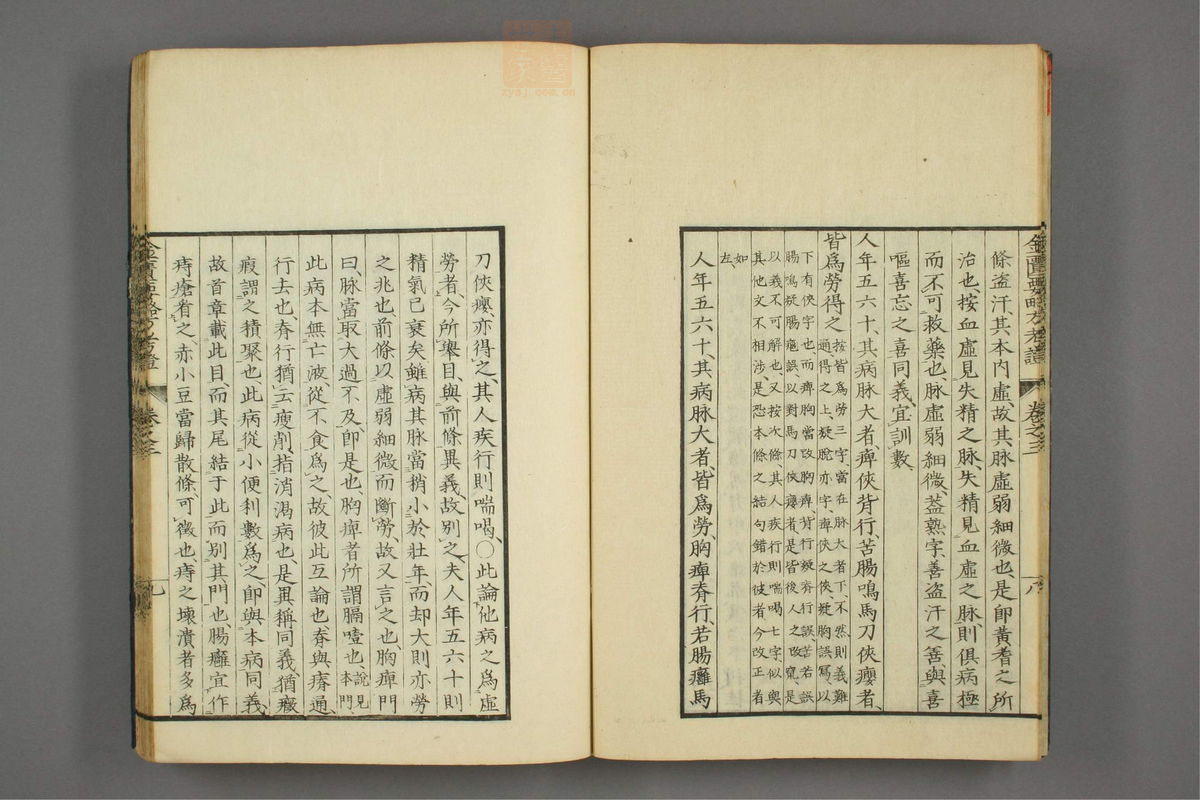 條盗汗、其本內虛、故其脉虛弱細微也、是卽黃耆之所
治也、按血虛見失精之脉、失精見血虛之脉、則俱病極
而不可救藥也、脉虛弱細微、蓋熟字、善盗汗之善、與喜
嘔喜忘之喜同義、宜訓數
人年五六十、其病脉大者、痺俠背行、苦腸鳴、馬刀俠癭者、
皆爲勞得之、
按皆爲勞三字、當在脉大者下、不然則義難
通、得之上、疑脫亦字、痺俠之俠、疑胸誤寫、以
下有俠字也、而痺胸當改胸痺、背行疑脊行誤、苦若誤
腸鳴疑腸癰誤、以對馬刀俠癭者、是皆後人之改竄、是
以義不可解也、又按次條、其人疾行則喘喝七字、似與
其他文不相涉、是恐本條之結句、錯於彼者、今改正者
如
左、
人年五六十、其病脉大者、皆爲勞、胸痺脊行、若腸癰馬
金匱要略方考證 卷之三 八
刀俠癭、亦得之、其人疾行則喘喝、〇此論他病之爲虛
勞者、今所擧目、與前條異義、故別之、夫人年五六十、則
精氣已衰矣、雖病其脉當稍小於壯年、而却大則亦勞
之兆也、前條以虛弱細微而斷勞、故又言之也、胸痺門
曰、脉當取大過不及、卽是也、胸痺者所謂膈噎也、說見本門、
此病本無亡液、從不食爲之、故彼此互論也、脊與瘠通、
行去也、脊行猶云瘦削、指消渴病也、是異稱同義、猶癥
瘕謂之積聚也、此病從小便利數爲之、卽與本病同義、
故首章載此目、而其尾結于此而別其門也、腸癰宜作
痔瘡看之、赤小豆當歸散條、可徵也、痔之壞潰者多爲
卷之三 九